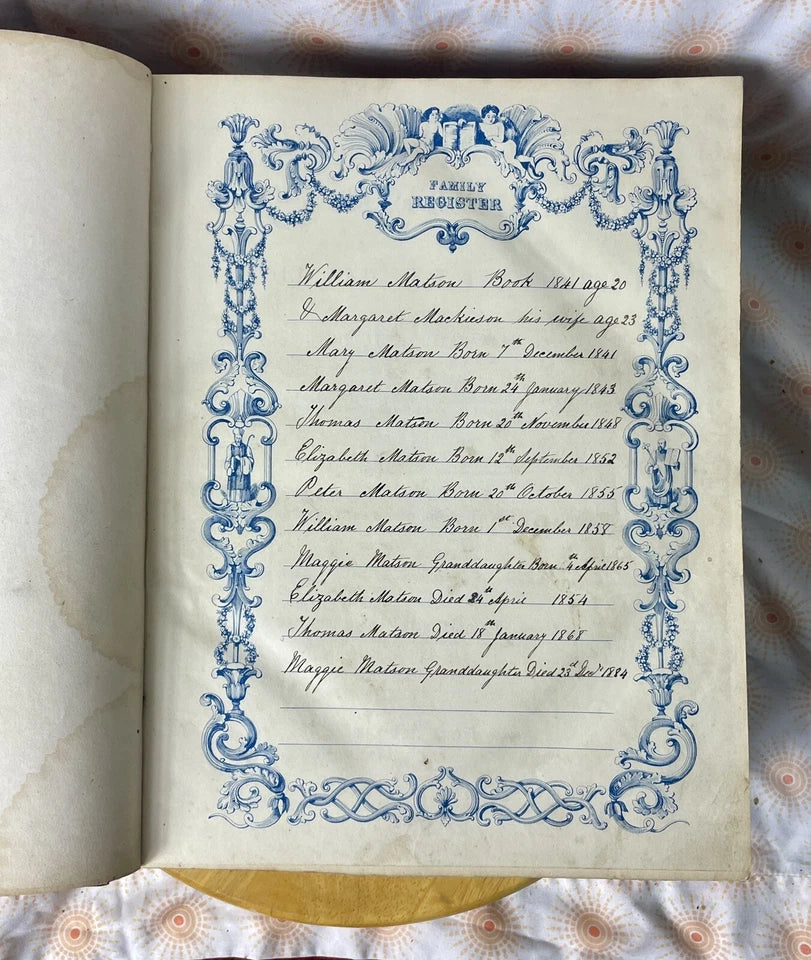 FAMILY
REGISTER
William Matson Book 1841 age 20
& Margaret Mackieson his wife age 23
Mary Matson Born 7th December 1841
Margaret Matson Born 24th January 1843
Thomas Matson Born 20th November 1848
Elizabeth Matson Born 12th September 1852
Peter Matson Born 20th October 1855
William Matson Born 1st December 1858
Maggie Matson Granddaughter Born 4th April 1865
Elizabeth Matson Died 24th April 1854
Thomas Matson Died 18th January 1868
Maggie Matson Granddaughter Died 23d 1884